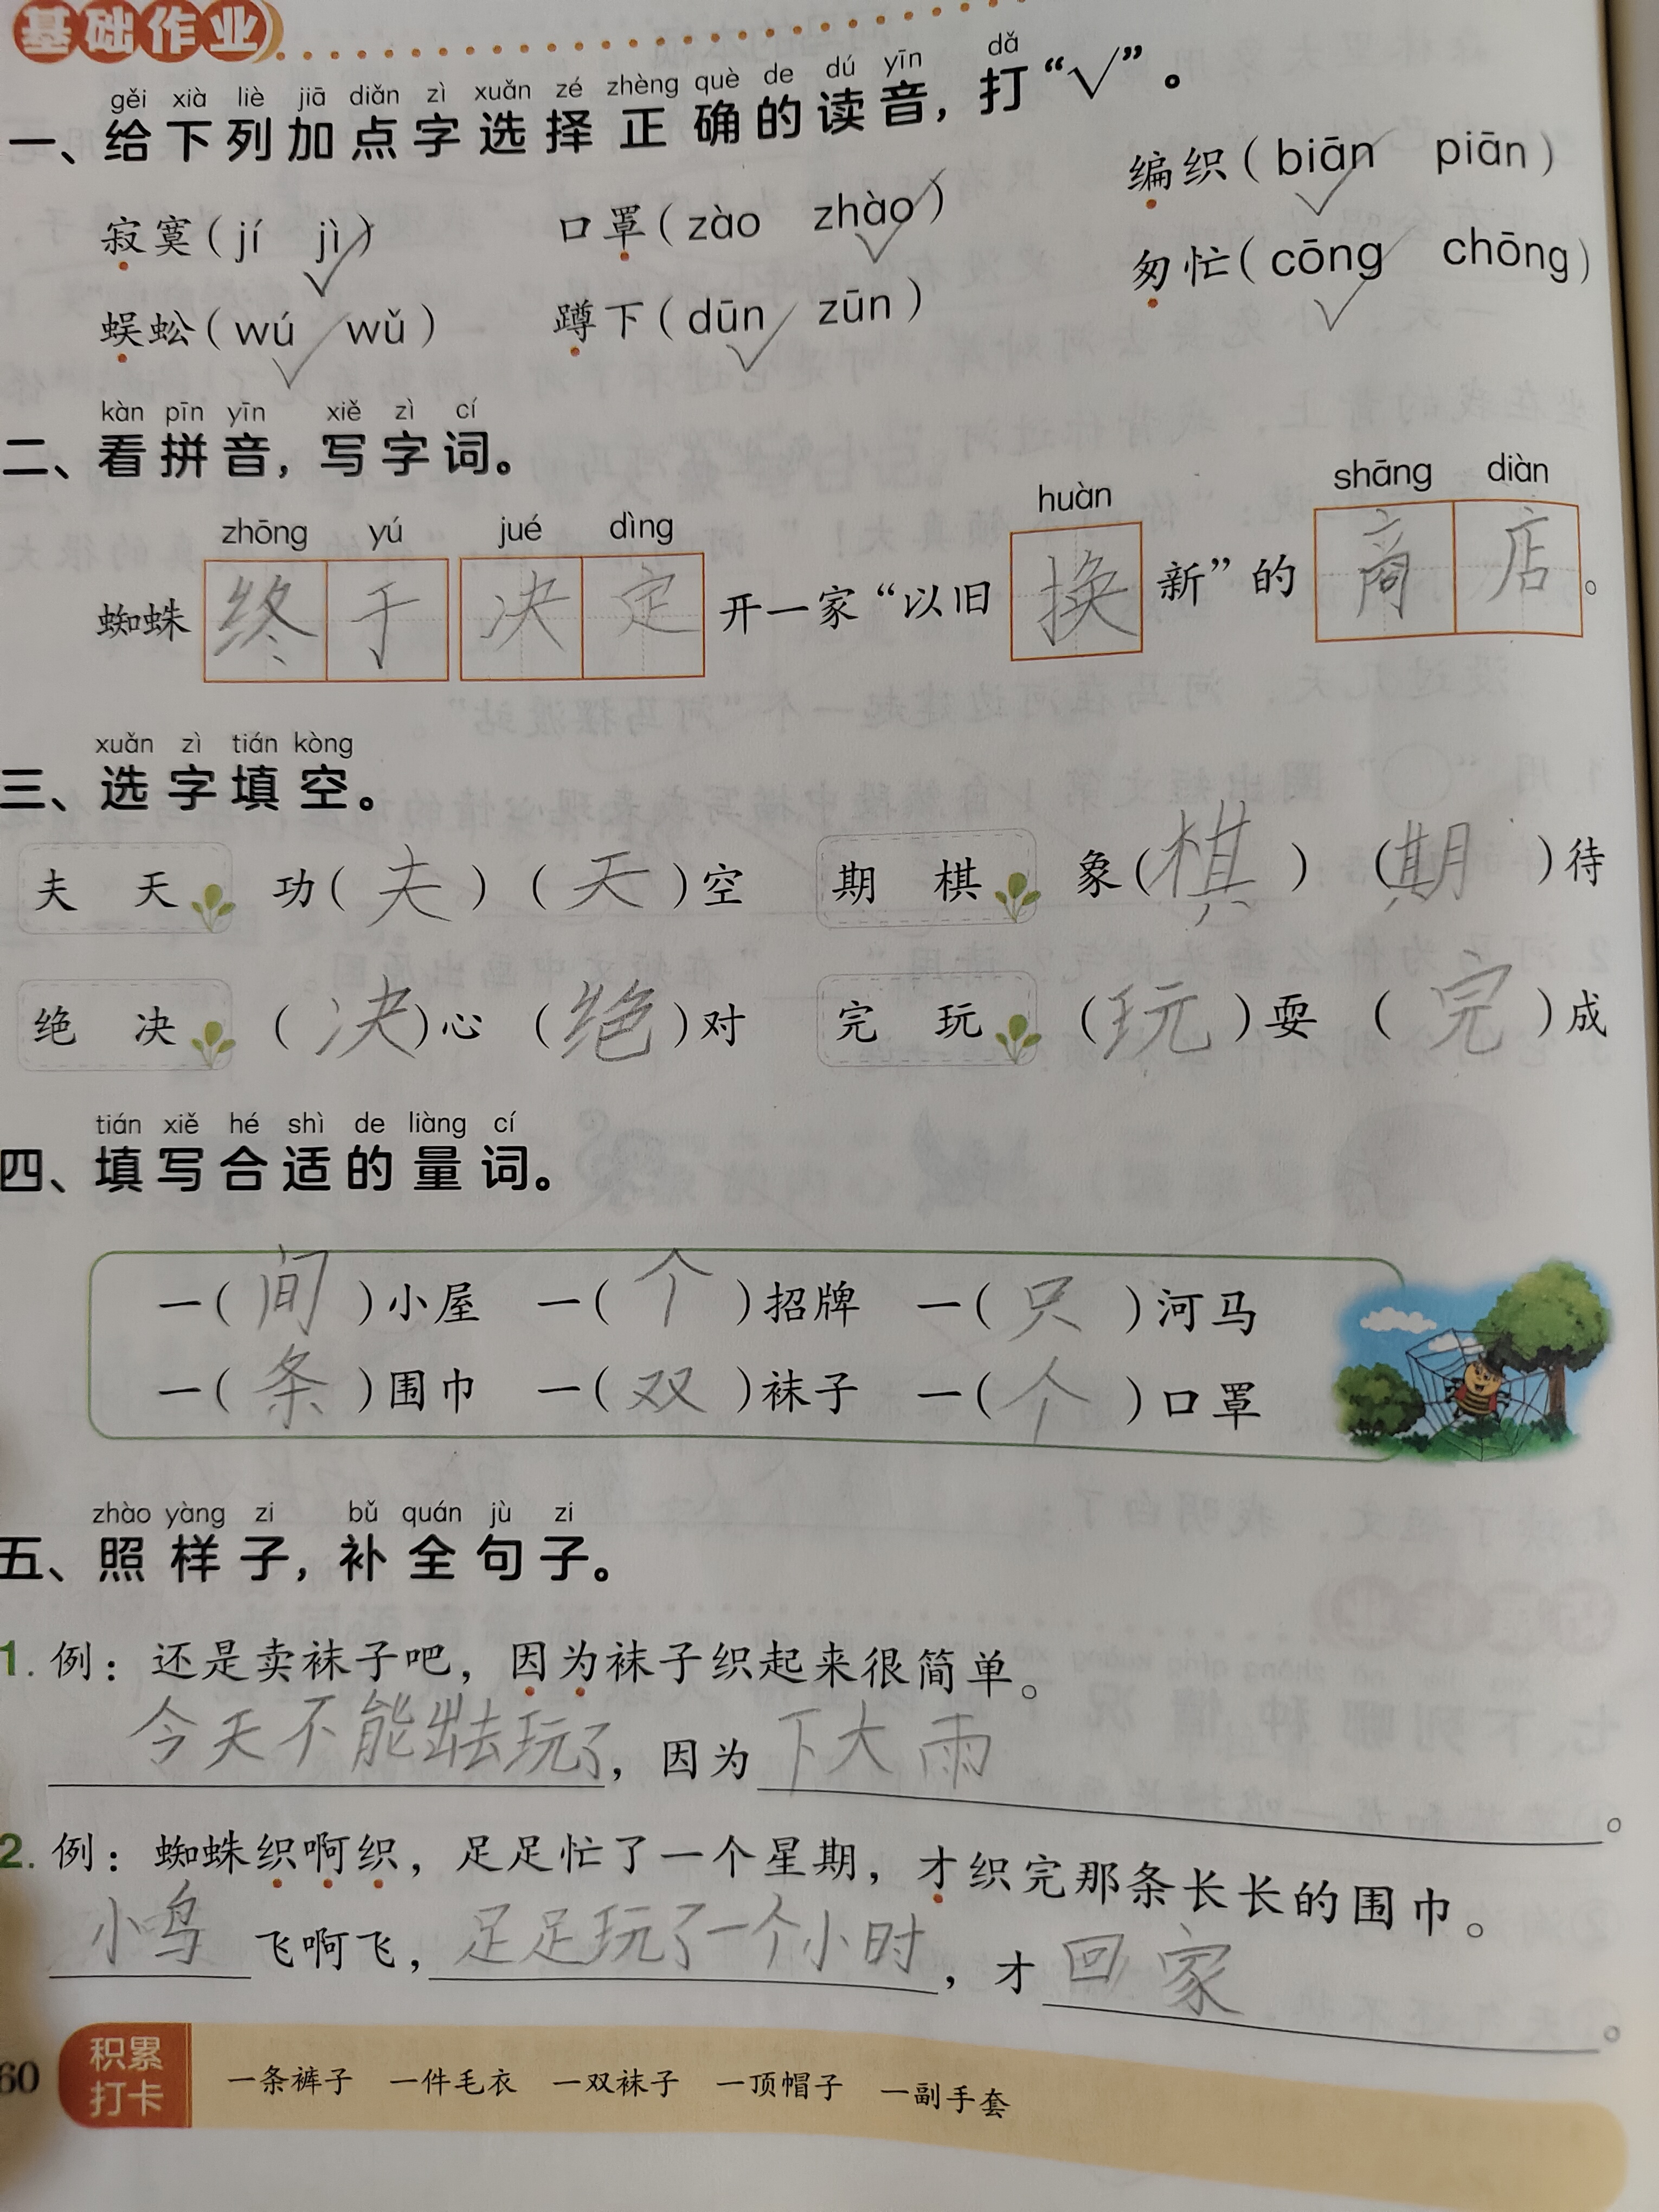 基础作业
gěi xià liè jiā diǎn zì xuǎn zé zhèng què de dú yīn dǎ
一、给下列加点字选择正确的读音，打“√”。
寂寞（jí jì√） 口罩（zào zhào√） 编织（biān√ piān）
蜈蚣（wú√ wǔ） 蹲下（dūn√ zūn） 匆忙（cōng√ chōng）
kàn pīn yīn xiě zì cí
二、看拼音，写字词。
zhōng yú jué dìng huàn shāng diàn
蜘蛛终于决定开一家“以旧换新”的商店。
xuǎn zì tián kòng
三、选字填空。
夫 天 功（夫）（天）空 期 棋 象（棋）（期）待
绝 决 （决）心 （绝）对 完 玩 （玩）耍 （完）成
tián xiě hé shì de liàng cí
四、填写合适的量词。
一（间）小屋 一（个）招牌 一（只）河马
一（条）围巾 一（双）袜子 一（个）口罩
zhào yàng zi bǔ quán jù zi
五、照样子，补全句子。
1. 例：还是卖袜子吧，因为袜子织起来很简单。
今天不能出去玩了，因为下大雨。
2. 例：蜘蛛织啊织，足足忙了一个星期，才织完那条长长的围巾。
小鸟飞啊飞，足足玩了一个小时，才回家。
60 积累打卡 一条裤子 一件毛衣 一双袜子 一顶帽子 一副手套